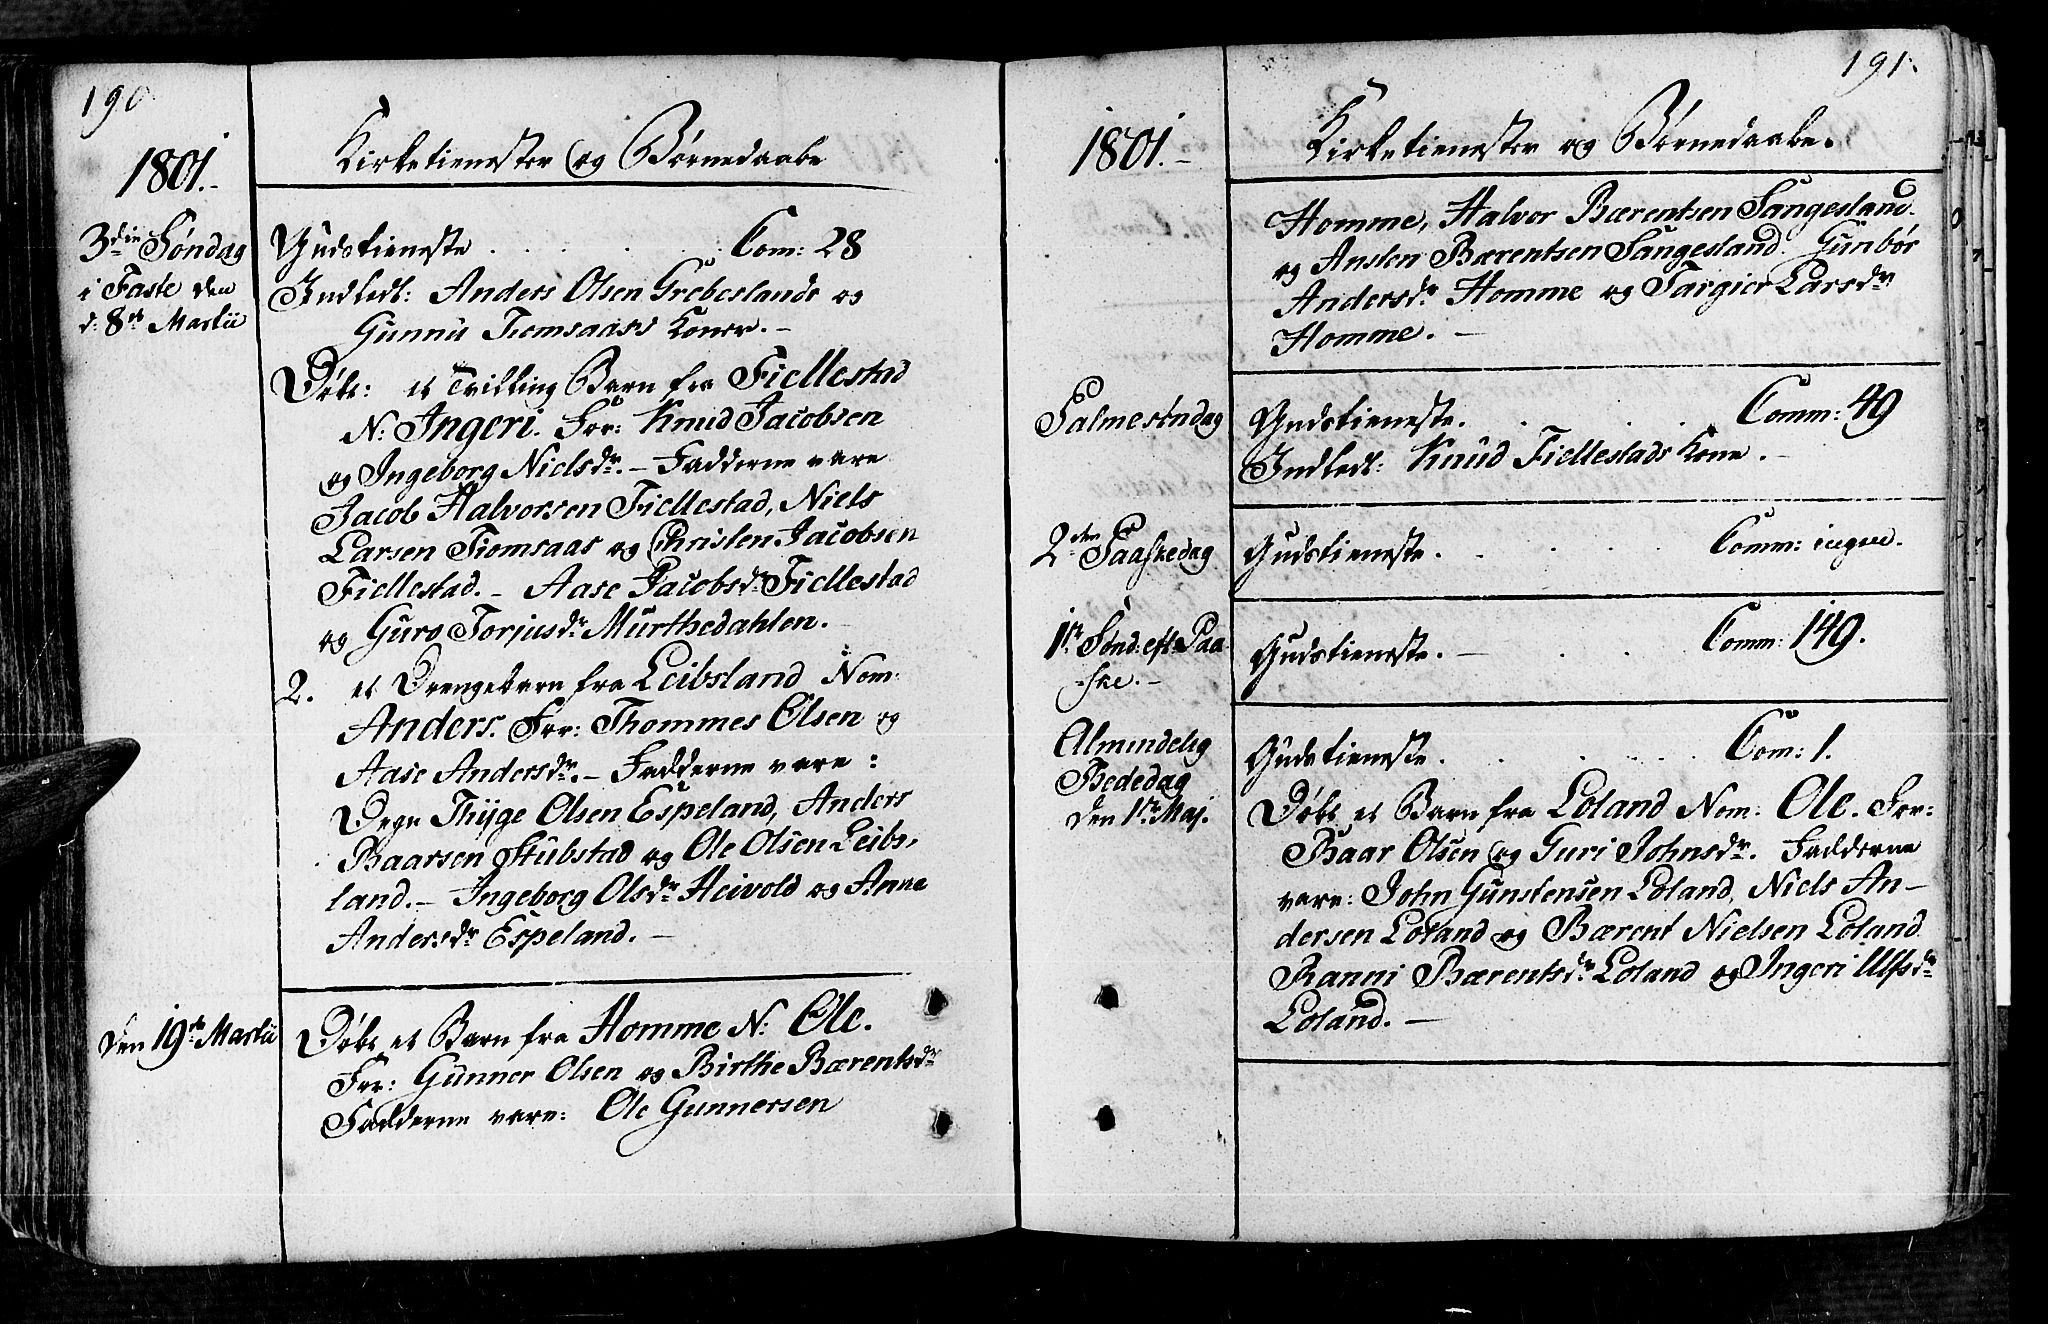 190
1801.-
Kirketienester og Børnedaabe
3die Søndag
i Faste den
d: 8de Martii
Gudstieneste . . . . . Com: 28
Indledt: Anders Olsen Grebeslands og
Gunnu Tiomsaass Koner.-
Døbt: et Tvilling Barn fra Fiellestad
N: Ingeri. For: Knud Jacobsen
og Ingeborg Nielsdr.- Fadderne vare
Jacob Halvorsen Fiellestad, Niels
Larsen Tiomsaas og Christen Jacobsen
Fiellestad.- Aase Jacobsdr Fiellestad
og Guro Torjusdr Murthedahlen.
2. et Drengebarn fra Leibsland Nom:
Anders. For: Thommes Olsen og
Aase Andersdr.- Fadderne vare:
Degn Thÿge Olsen Espeland, Anders
Baarsen Stubstad og Ole Olsen Leibs,
land.- Ingeborg Olsdr Heivold og Anna
Andersdr Espeland.-
den 19de Martii
Døbt et Barn fra Homme N: Ole.
For: Gunner Olsen og Birthe Bærentsdr
Fadderne vare: Ole Gunnersen
191.
1801.-
Kirketienester og Børnedaabe.
Homme, Halvor Bærentsen Sangesland.
og Ansten Bærentsen Sangesland. Gunbør
Andersdr Homme og Targier Larsdr
Homme.-
Palmesøndag
Gudstieneste. . . . . Comm: 49
Indledt: Knud Fiellestads Kone.-
2den Paaskedag
Gudstieneste. . . . . Comm: ingen.
1ste Sønd: eft: Paa
-ske.-
Gudstieneste.- . . . Comm: 149.
Almindelig
Bededag
den 1ste Maj.
Gudstieneste. . . . . Com: 1.
Døbt et Barn fra Loland Nom: Ole. For:
Baar Olsen og Guri Johnsdr. Fadderne
vare: John Gunstensen Loland, Niels An-
dersen Loland og Bærent Nielsen Loland
Ranni Bærentsdr Loland og Ingeri Ulfsdr
Loland.-